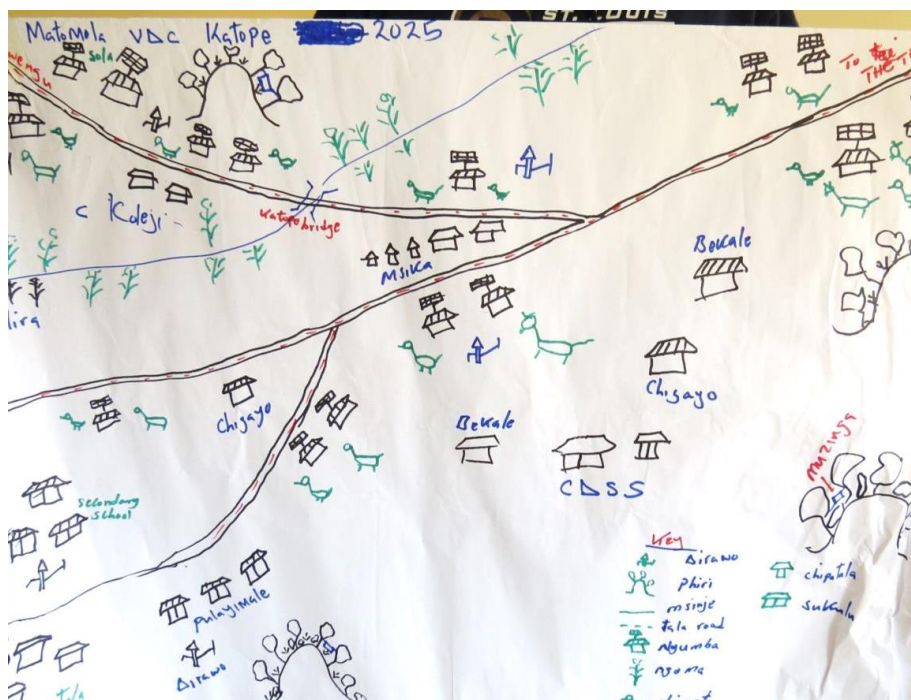 Matomola VDC Katope 2025
sola
Katope bridge
Koleji
Msika
Bekale
Chigayo
Chigayo
Bekale
CDSS
Muzinga
secondary
school
pulayimale
Dirawo
Key
Dirawo
Phiri
msinje
tala road
Nyumba
ngoma
chipatala
sukulu